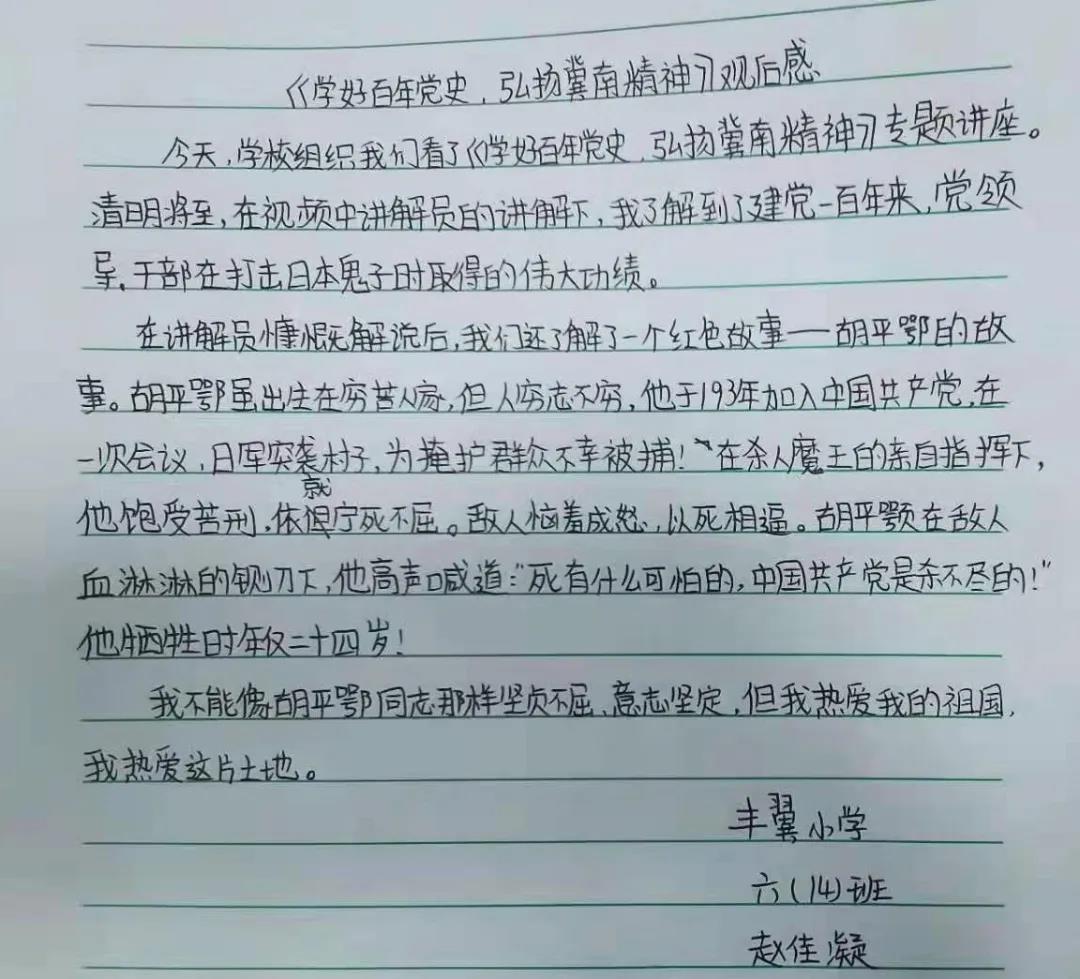 《学好百年党史，弘扬冀南精神》观后感
今天，学校组织我们看了《学好百年党史，弘扬冀南精神》专题讲座。
清明将至，在视频中讲解员的讲解下，我了解到了建党一百年来，党领
导，干部在打击日本鬼子时取得的伟大功绩。
在讲解员慷慨解说后，我们还了解了一个红色故事——胡平鄂的故
事。胡平鄂虽出生在穷苦人家，但人穷志不穷，他于193年加入中国共产党，在
一次会议，日军突袭村子，为掩护群众不幸被捕！在杀人魔王的亲自指挥下，
就
他饱受苦刑，依但宁死不屈。敌人恼羞成怒，以死相逼。胡平颚在敌人
血淋淋的铡刀下，他高声喊道："死有什么可怕的，中国共产党是杀不尽的！"
他牺牲时年仅二十四岁！
我不能像胡平鄂同志那样坚贞不屈、意志坚定，但我热爱我的祖国，
我热爱这片土地。
丰翼小学
六（14）班
赵佳凝